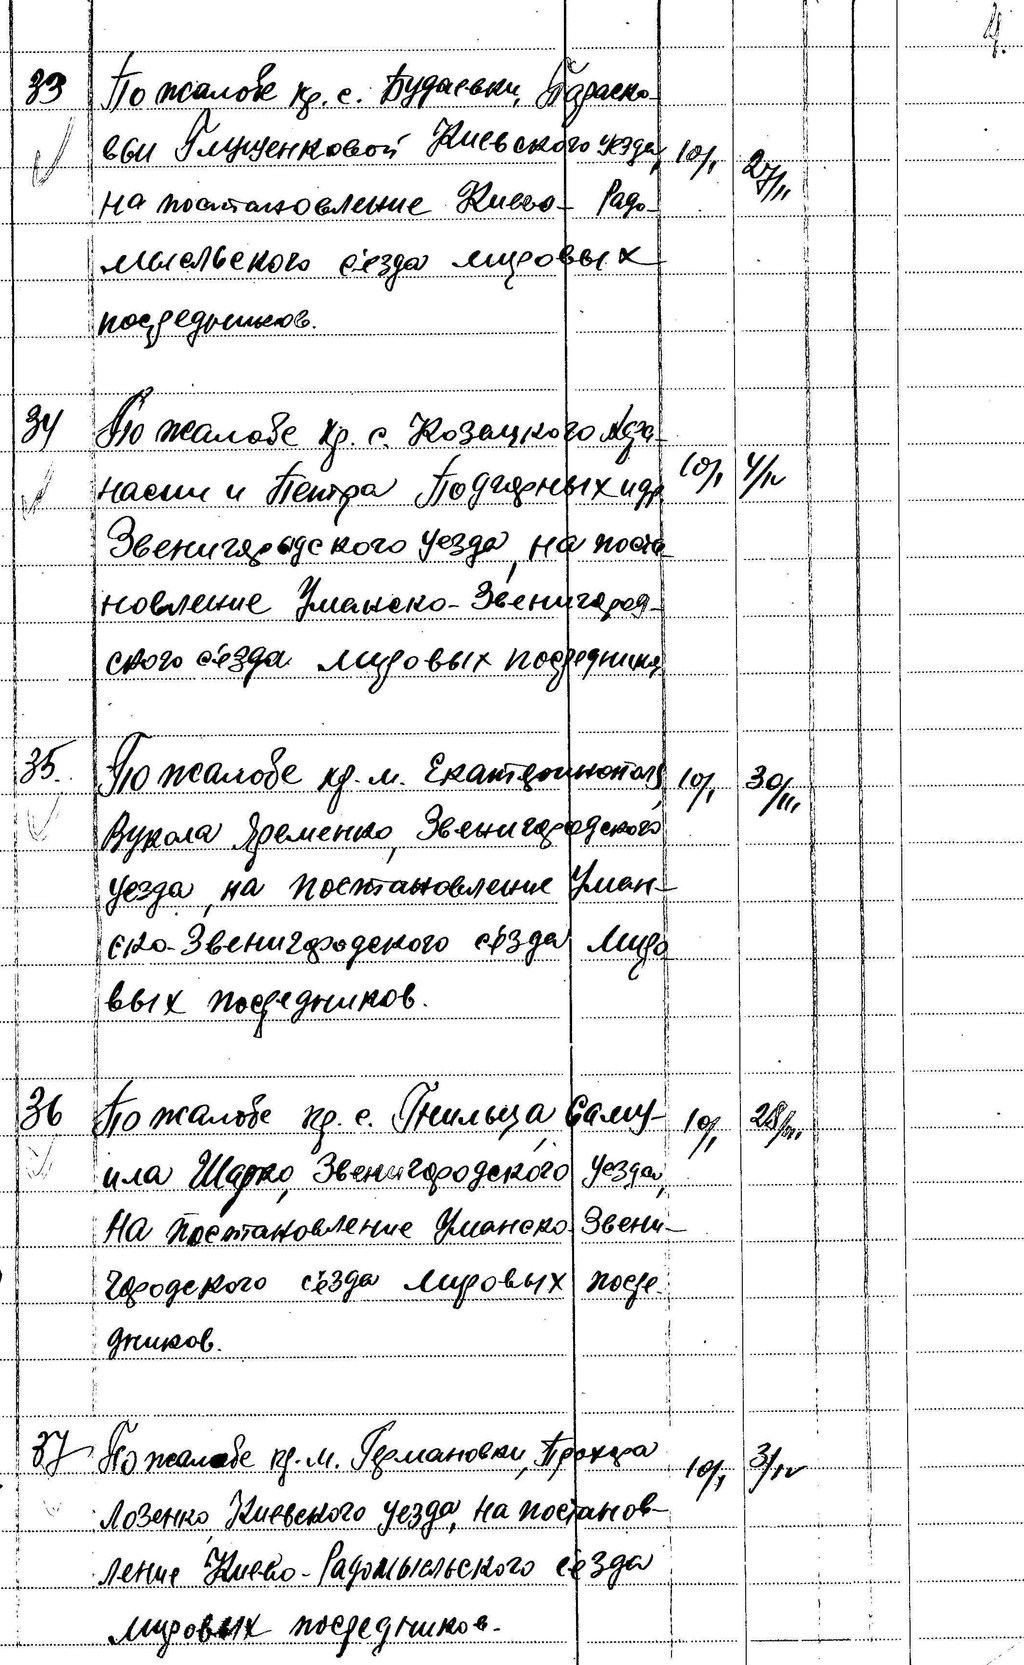 4.
33 По жалобе кр. с. Будаевки, Параско-
вьи Глущенковой Киевского уезда, 10/I 27/II
на постановление Киево-Радо-
мысльского съезда мировых
посредников.
34 По жалобе кр. с. Козацкого Афа-
насии и Петра Подгорных и др. 10/I 4/IV
Звенигородского уезда, на поста-
новление Уманско-Звенигород-
ского съезда мировых посредник.
35. По жалобе кр. м. Екатеринополя, 10/I 30/III
Вукола Яременко, Звенигородского
уезда, на постановление Уман-
ско-Звенигородского съезда миро
вых посредников.
36 По жалобе кр. с. Гнильца, Саму- 10/I
ила Шарко, Звенигородского уезда,
на постановление Уманско-Звени-
городского съезда мировых посре-
дников.
37 По жалобе кр. м. Германовки, Прокора 10/I 3/IV
Лозенко, Киевского уезда, на постанов-
ление Киево-Радомысльского съезда
мировых посредников.